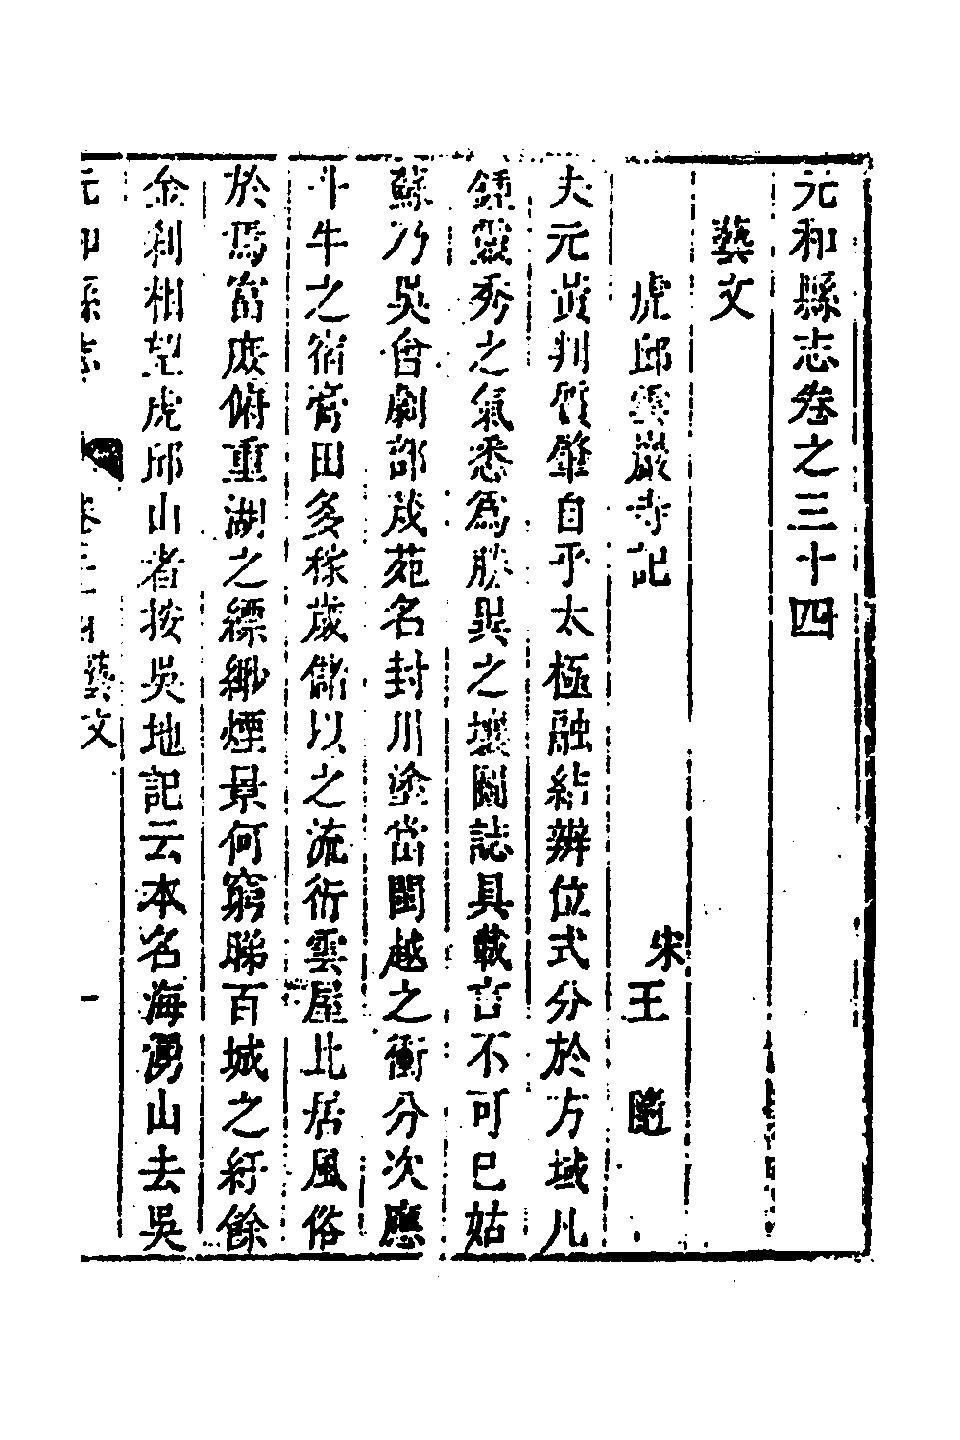 元和縣志卷之三十四
藝文
虎邱雲巖寺記
宋王隨
夫元黃判質肇自乎太極融結辨位式分於方域凡
鍾靈秀之氣悉為勝異之壤圖誌具載言不可已姑
蘇乃吳會劇部茂苑名封川塗峇閩越之衝分次應
斗牛之宿膏田多稼歲儲以之流衍雲屋比居風俗
於焉富庶俯重湖之縹緲煙景何窮睇百城之紆餘
金刹相望虎邱山者按吳地記云本名海湧山去吳
元和縣志 卷三十四藝文 一